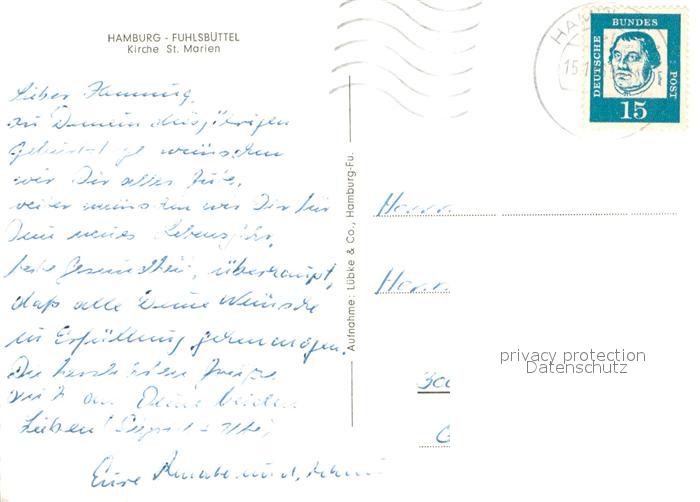 HAMBURG - FUHLSBÜTTEL
Kirche St. Marien
DEUTSCHE BUNDES POST
15
15.1
Lieber Hennung,
zu Deinem diesjährigen
Geburtstage wünschen
wir Dir alles Gute,
weiter wünschen wir Dir für
Dein neues Lebensjahr,
beste Gesundheit, überhaupt,
daß alle Deine Wünsche
in Erfüllung gehen mögen.
Die herzlichsten Grüße
auch an Deine beiden
Lieben!
Eure
Aufnahme: Lübke & Co., Hamburg-Fu.
Herrn
Herrn
privacy protection
Datenschutz